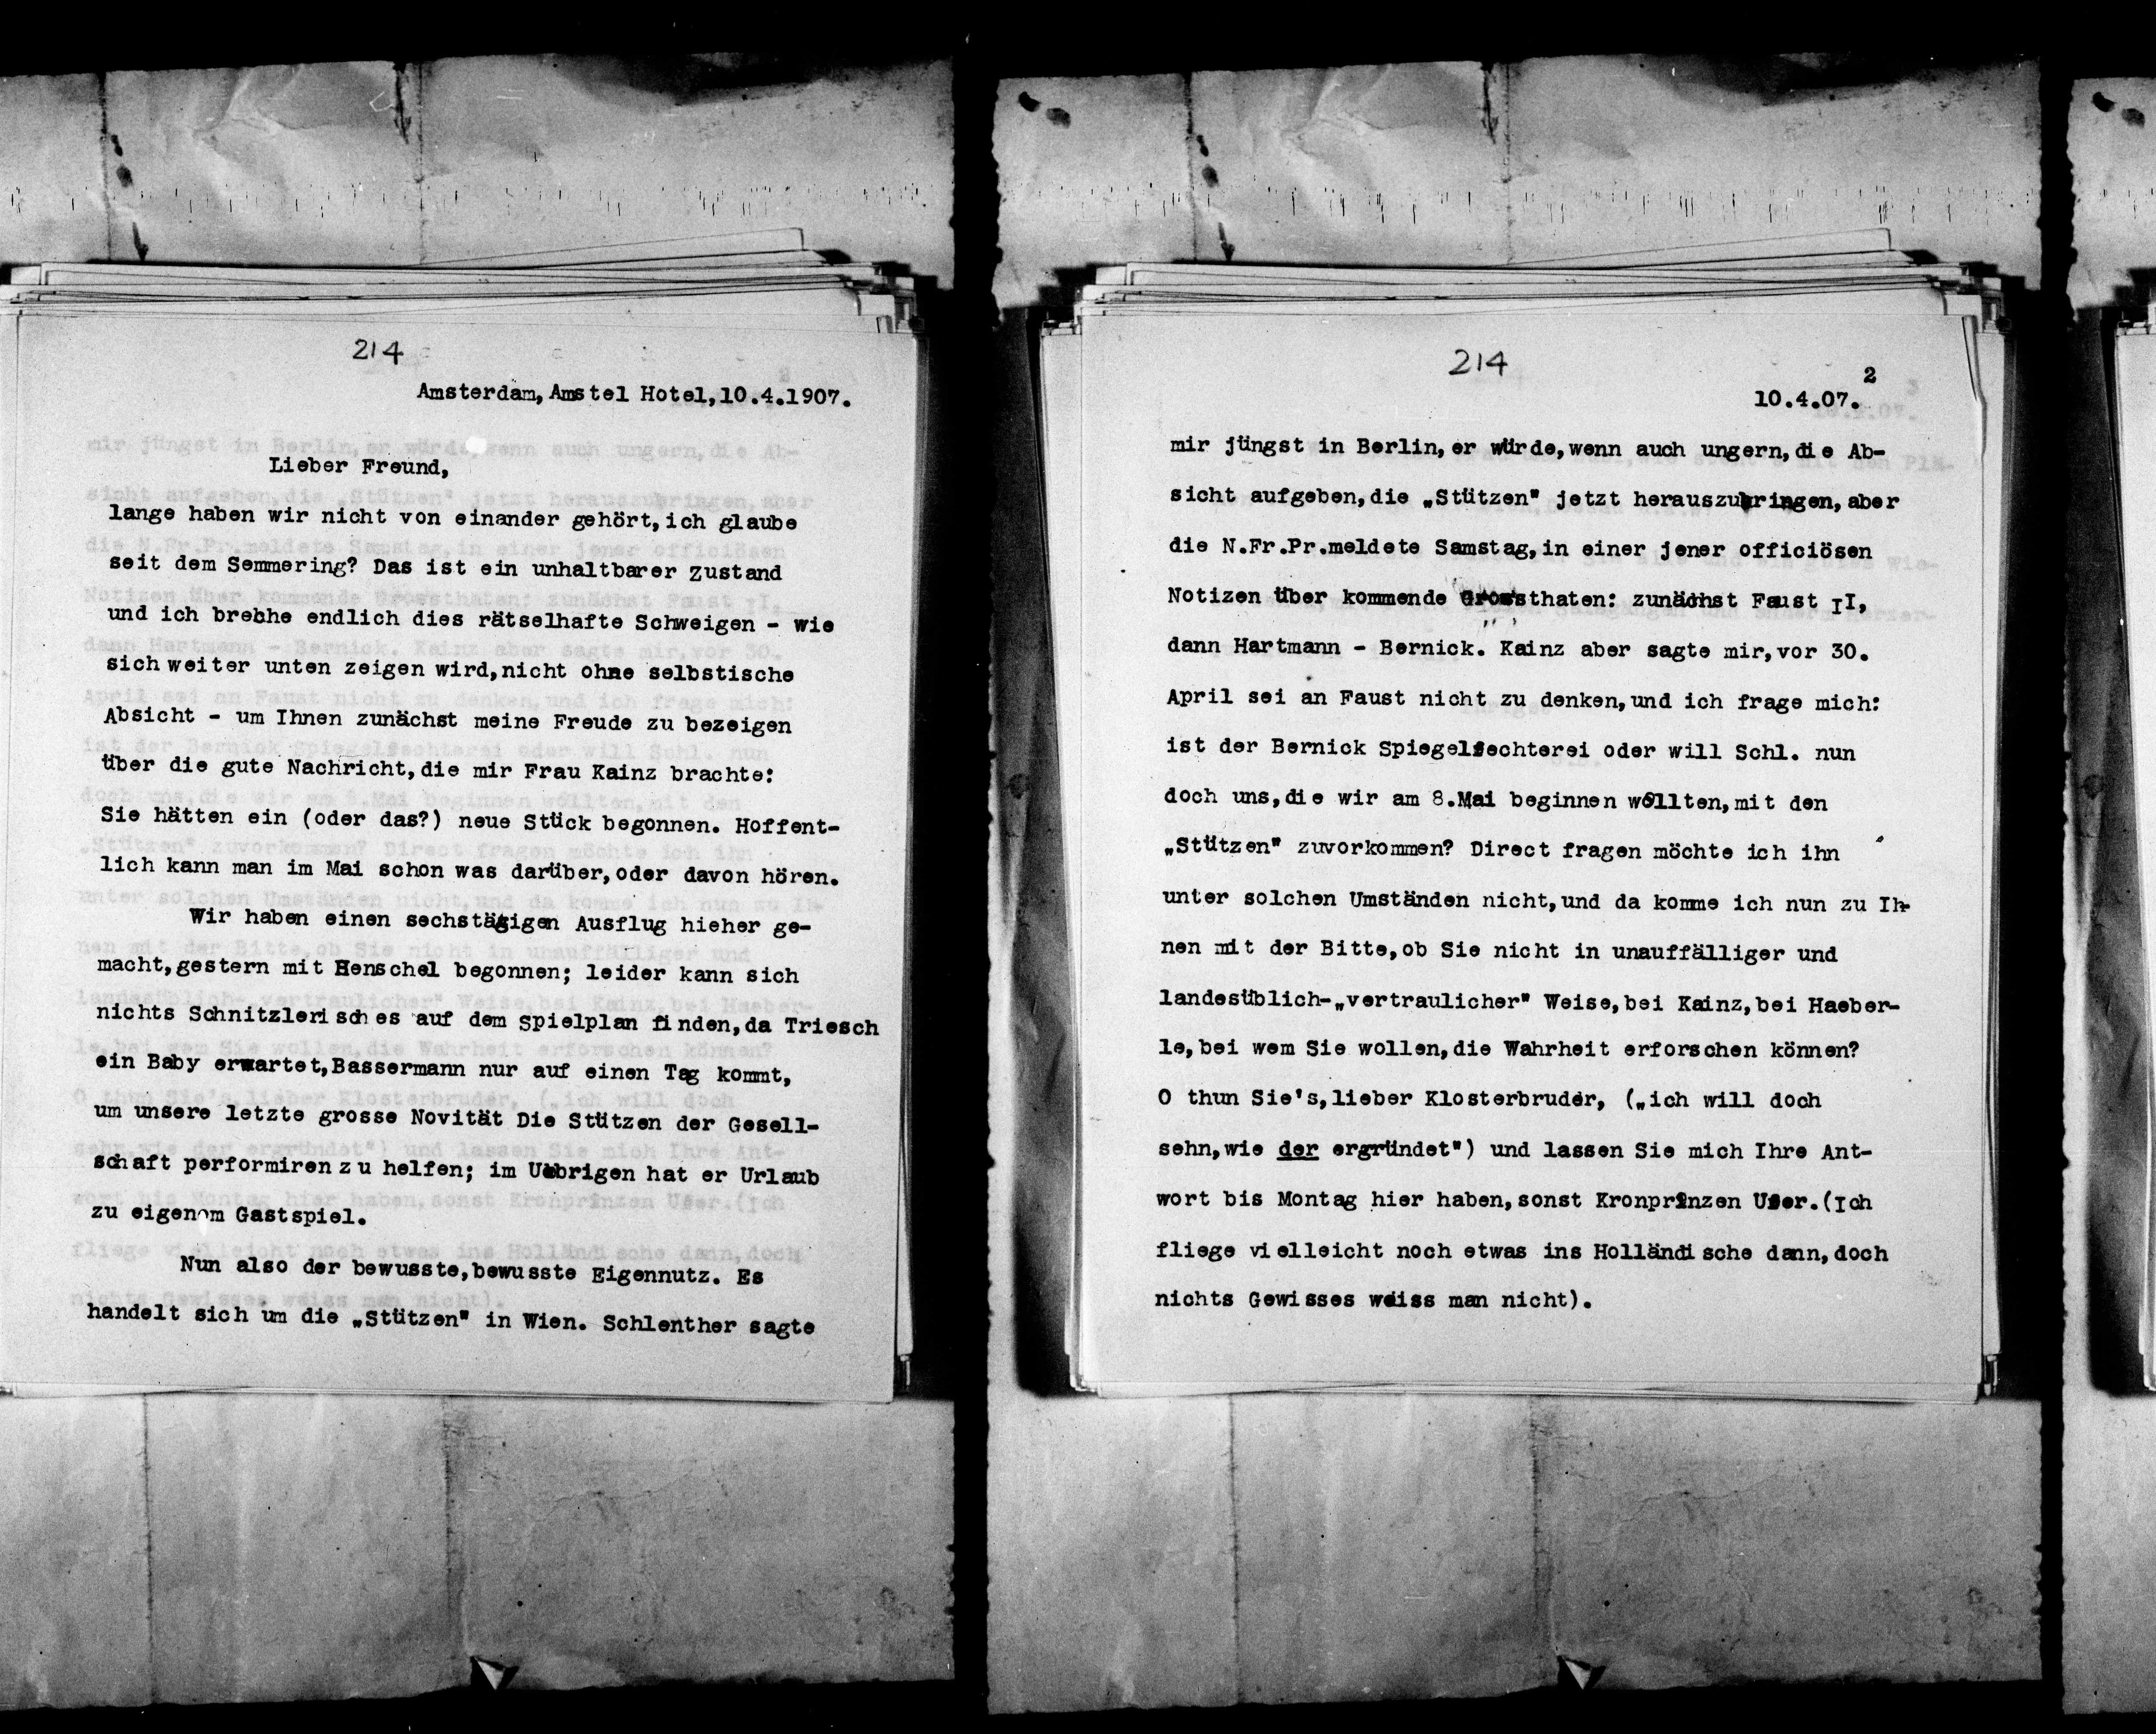 214
Amsterdam, Amstel Hotel, 10.4.1907.
Lieber Freund,
lange haben wir nicht von einander gehört, ich glaube
seit dem Semmering? Das ist ein unhaltbarer Zustand
und ich breche endlich dies rätselhafte Schweigen - wie
sich weiter unten zeigen wird, nicht ohne selbstische
Absicht - um Ihnen zunächst meine Freude zu bezeigen
über die gute Nachricht, die mir Frau Kainz brachte:
Sie hätten ein (oder das?) neue Stück begonnen. Hoffent-
lich kann man im Mai schon was darüber, oder davon hören.
Wir haben einen sechstägigen Ausflug hieher ge-
macht, gestern mit Henschel begonnen; leider kann sich
nichts Schnitzlerisches auf dem Spielplan finden, da Triesch
ein Baby erwartet, Bassermann nur auf einen Tag kommt,
um unsere letzte grosse Novität Die Stützen der Gesell-
schaft performiren zu helfen; im Uebrigen hat er Urlaub
zu eigenem Gastspiel.
Nun also der bewusste, bewusste Eigennutz. Es
handelt sich um die „Stützen" in Wien. Schlenther sagte
214
2
10.4.07.
mir jüngst in Berlin, er würde, wenn auch ungern, die Ab-
sicht aufgeben, die „Stützen" jetzt herauszubringen, aber
die N.Fr.Pr. meldete Samstag, in einer jener officiösen
Notizen über kommende Grossthaten: zunächst Faust II,
dann Hartmann - Bernick. Kainz aber sagte mir, vor 30.
April sei an Faust nicht zu denken, und ich frage mich:
ist der Bernick Spiegelfechterei oder will Schl. nun
doch uns, die wir am 8. Mai beginnen wollten, mit den
„Stützen" zuvorkommen? Direct fragen möchte ich ihn
unter solchen Umständen nicht, und da komme ich nun zu Ih-
nen mit der Bitte, ob Sie nicht in unauffälliger und
landesüblich-„vertraulicher" Weise, bei Kainz, bei Haeber-
le, bei wem Sie wollen, die Wahrheit erforschen können?
O thun Sie's, lieber Klosterbruder, („ich will doch
sehn, wie der ergründet") und lassen Sie mich Ihre Ant-
wort bis Montag hier haben, sonst Kronprinzen Ufer. (Ich
fliege vielleicht noch etwas ins Holländische dann, doch
nichts Gewisses weiss man nicht).